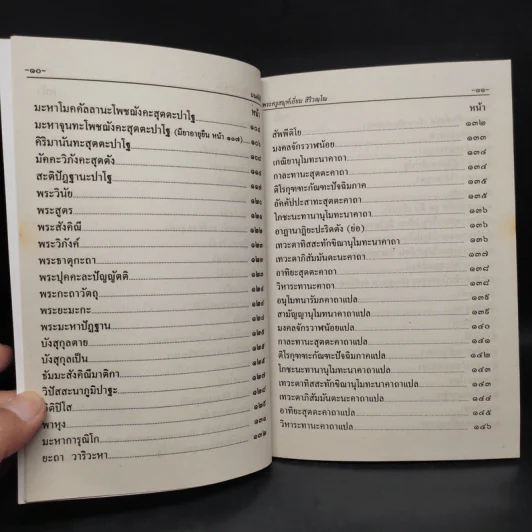 -๑๐-
หน้า
มะหาโมคคัลลานะโพชฌังคะสุตตะปาโฐ
มะหาจุนทะโพชฌังคะสุตตะปาโฐ (มียาอายุยืน หน้า ๑๐๗) ๑๐๖
คิริมานันทะสุตตะปาโฐ ๑๐๘
มัคคะวิภังคะสุตตัง
สะติปัฏฐานะปาโฐ
พระวินัย ๑๒๐
พระสูตร ๑๒๑
พระสังคิณี ๑๒๒
พระวิภังค์ ๑๒๒
พระธาตุกะถา
พระปุคคะละปัญญัตติ
พระกะถาวัตถุ
พระยะมะกะ
พระมะหาปัฏฐาน
บังสุกุลตาย
บังสุกุลเป็น
ธัมมะสังคิณีมาติกา
วิปัสสนาภูมิปาฐะ
อิติปิโส
พาหุง
มะหาการุณิโก
ยะถา วาริวะหา
-๑๑-
พระครูสมุห์เอี่ยม สิริวณฺโณ
หน้า
สัพพีติโย ๑๓๒
มงคลจักรวาฬน้อย ๑๓๓
เกณิยานุโมทนาคาถา ๑๓๔
กาละทานะสุตตะคาถา ๑๓๔
ติโรกุฑฑะกัณฑะปัจฉิมภาค ๑๓๕
อัคคัปปะสาทะสุตตะคาถา ๑๓๕
โภชะนะทานานุโมทะนาคาถา ๑๓๖
อาฏานาฏิยะปะริตตัง (ย่อ) ๑๓๖
เทวะตาทิสสะทักขิณานุโมทะนาคาถา ๑๓๖
เทวะตาภิสัมมันตะนะคาถา ๑๓๗
อาทิยะสุตตะคาถา ๑๓๘
วิหาระทานะคาถา ๑๓๘
อนุโมทนารัมภคาถาแปล ๑๓๙
สามัญญานุโมทนาคาถาแปล ๑๓๙
มงคลจักรวาฬน้อยแปล ๑๔๐
กาละทานะสุตตะคาถาแปล
ติโรกุฑฑะกัณฑะปัจฉิมภาคแปล ๑๔๒
โภชะนะทานานุโมทะนาคาถาแปล ๑๔๓
เทวะตาทิสสะทักขิณานุโมทะนาคาถาแปล ๑๔๓
เทวะตาภิสัมมันตะนะคาถาแปล ๑๔๔
อาทิยะสุตตะคาถาแปล ๑๔๕
วิหาระทานะคาถาแปล ๑๔๖